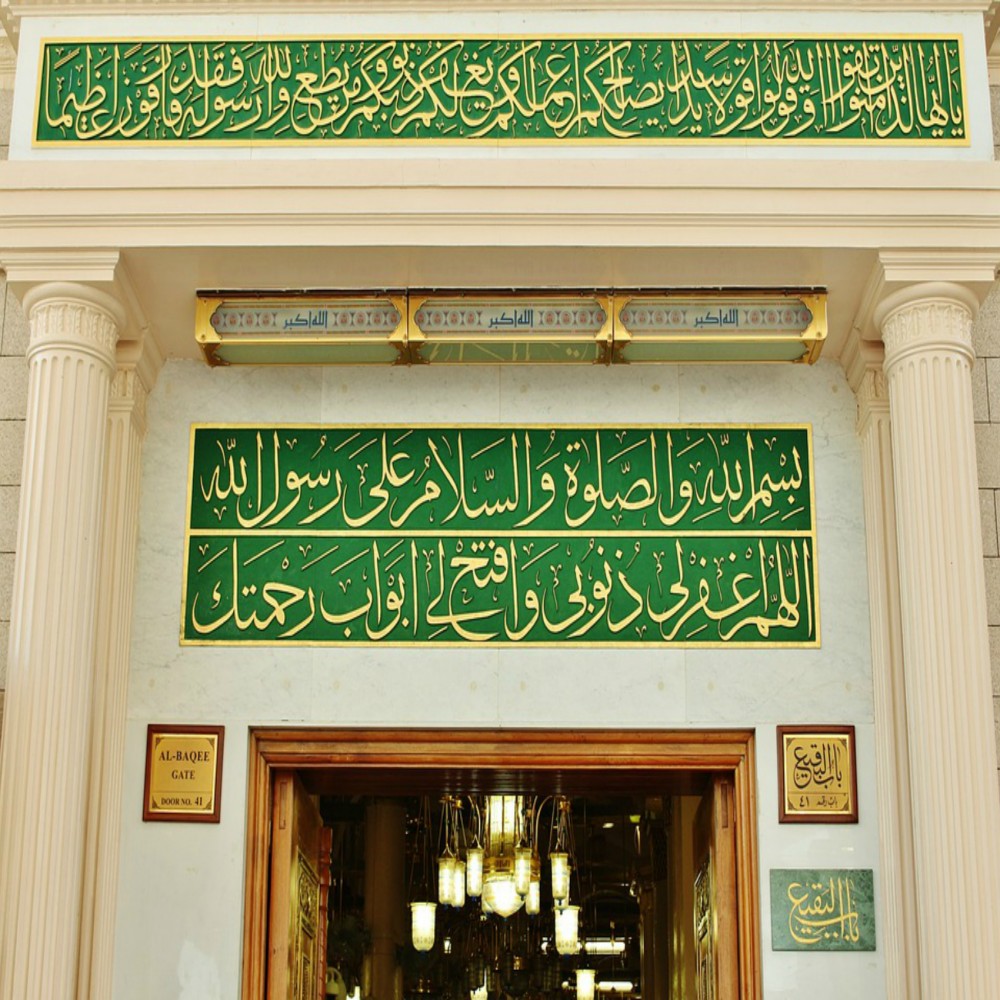 يا أيها الذين آمنوا اتقوا الله وقولوا قولا سديدا يصلح لكم أعمالكم ويغفر لكم ذنوبكم ومن يطع الله ورسوله فقد فاز فوزا عظيما
الله أكبر الله أكبر الله أكبر
بِسْمِ اللهِ وَالصَّلوٰةُ وَالسَّلَامُ عَلَى رَسُولِ اللهِ
اللّٰهُمَّ اغْفِرْ لِي ذُنُوبِي وَافْتَحْ لِي أَبْوَابَ رَحْمَتِكَ
AL-BAQEE
GATE
DOOR NO. 41
باب البقيع
باب رقم ٤١
باب البقيع